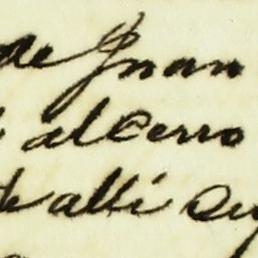 de Juan
al Cerro
alli